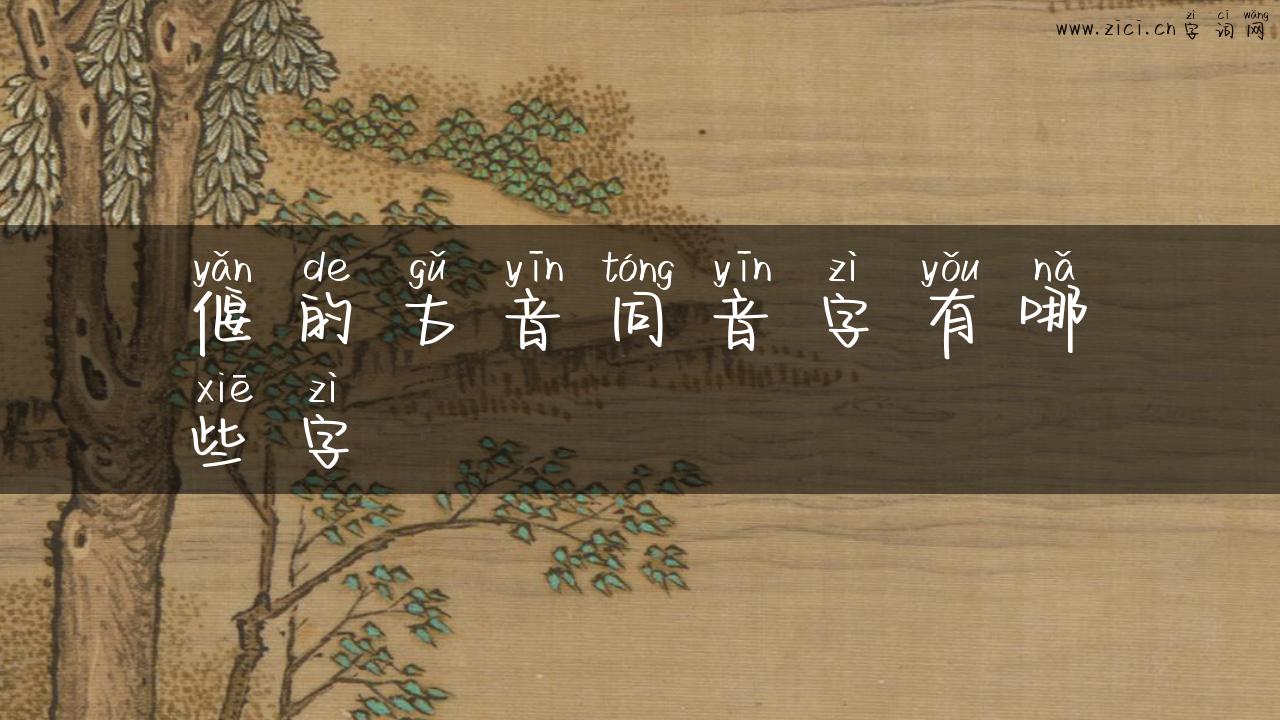 zì cí wǎng
www.zici.cn 字词网
yǎn de gǔ yīn tóng yīn zì yǒu nǎ
偃的古音同音字有哪
xiē zì
些字